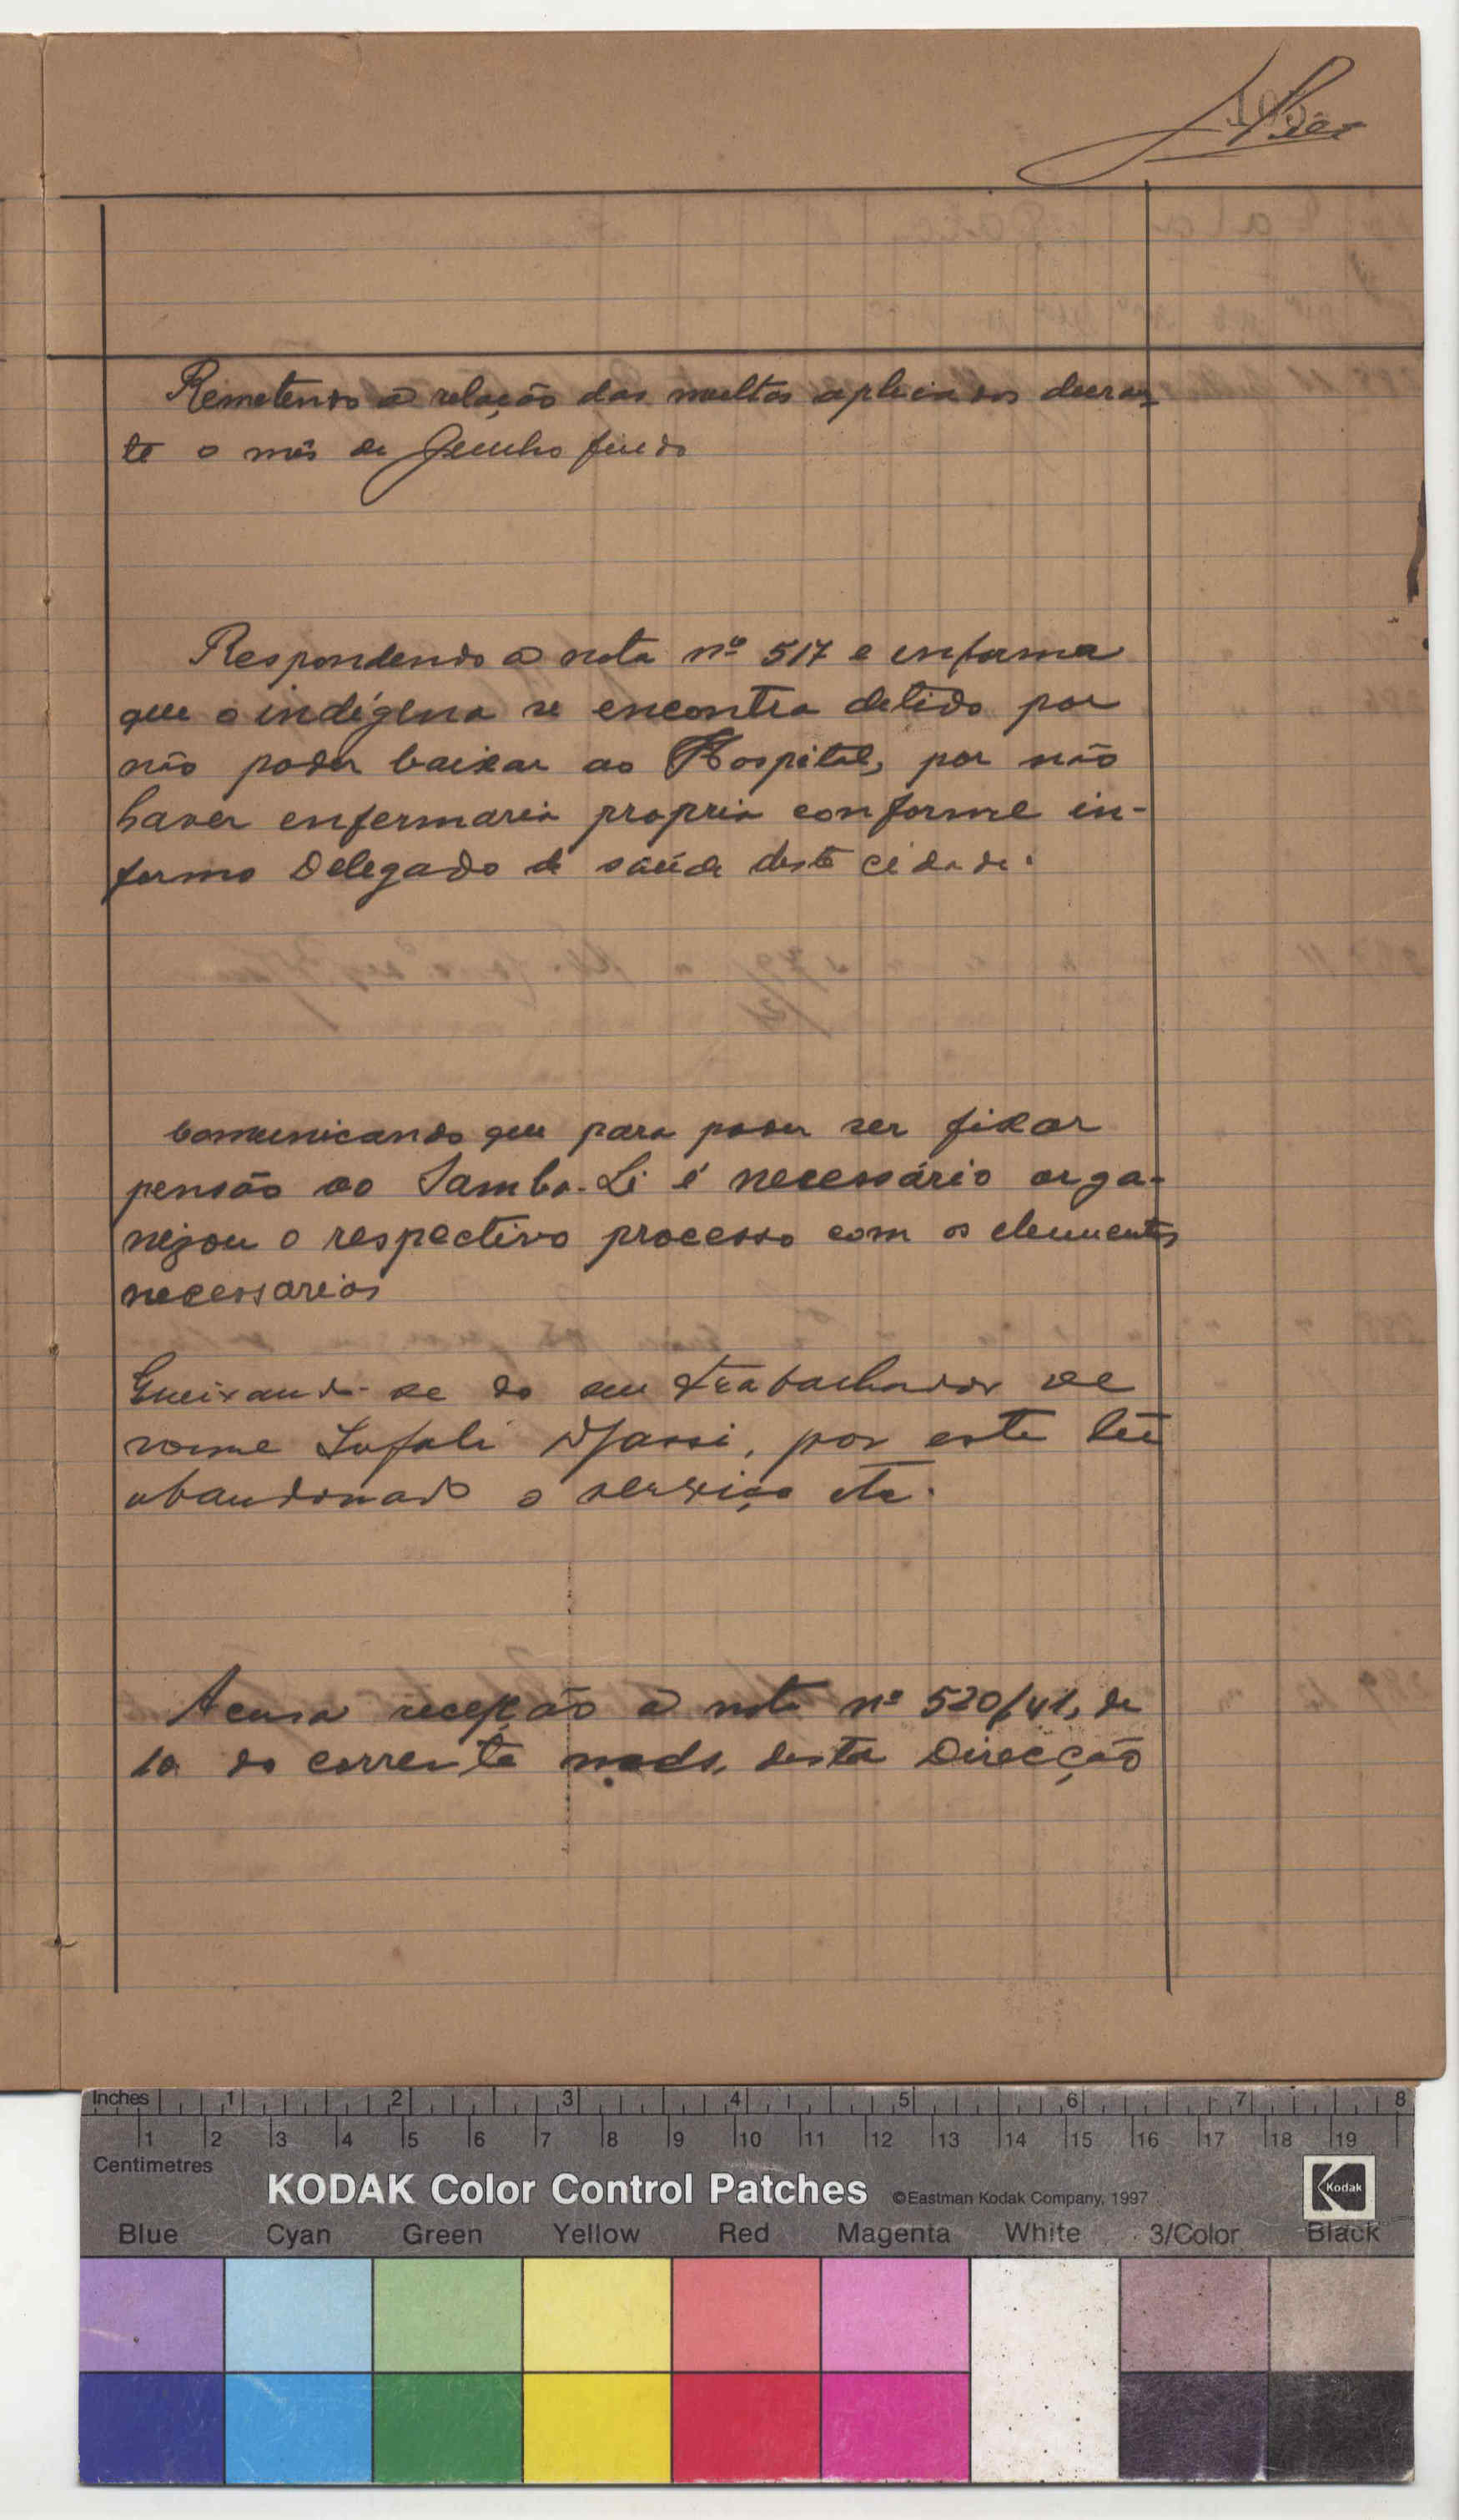 Remetendo a relação das multas aplicadas duran-
te o mês de Junho findo
Respondendo a nota nº 517 e informa
que o indígena se encontra detido por
não poder baixar ao Hospital, por não
haver enfermaria propria conforme in-
formo Delegado de saúde desta cidade.
Comunicando que para poder ser fixar
pensão ao Samba-Li é necessário orga-
nizou o respectivo processo com os elementos
necessarios
Queixando-se do seu trabalhador de
nome Djassi, por este
abandonado o serviço etc.
Acusa recepção a nota nº 520/41, de
10 do corrente desta Direcção
Inches 1 2 3 4 5 6 7 8
1 2 3 4 5 6 7 8 9 10 11 12 13 14 15 16 17 18 19
Centimetres
KODAK Color Control Patches ©Eastman Kodak Company, 1997 Kodak
Blue Cyan Green Yellow Red Magenta White 3/Color Black